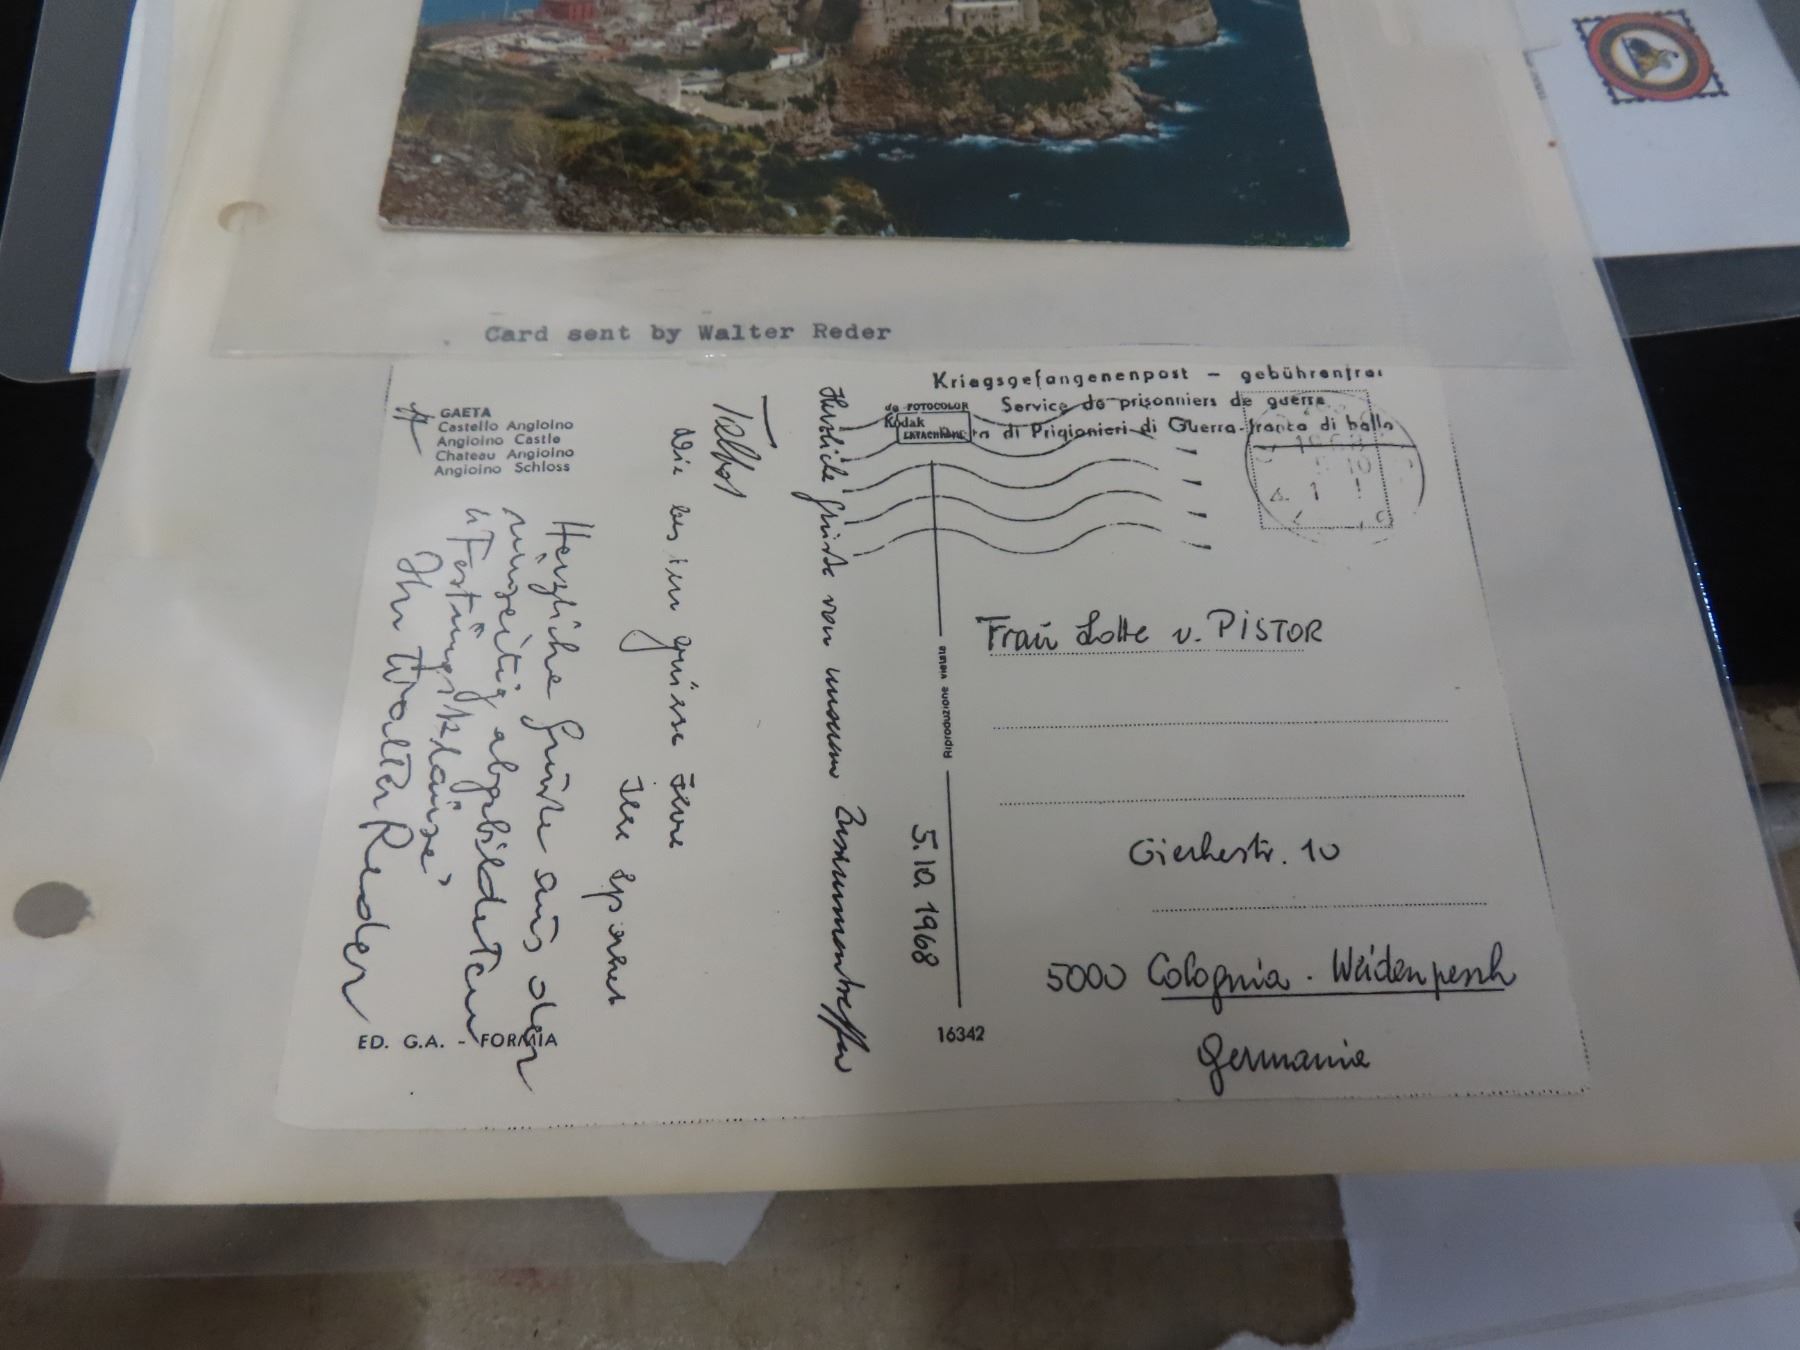 Card sent by Walter Reder
GAETA
Castello Angioino
Angioino Castle
Chateau Angioino
Angioino Schloss
Kriegsgefangenenpost - gebührenfrei
Service de prisonniers de guerre
di Prigionieri di Guerra-franco di bollo
da FOTOCOLOR
Kodak
EKTACHROME
1968
Herzliche Grüße von unserem Zusammentreffen
Herzliche Grüße aus der
umseitig abgebildeten
"Festungsklause"
Ihr Walter Reder
Riproduzione vietata
5.10.1968
Frau Lotte v. PISTOR
Gierkestr. 10
5000 Colognia - Weidenpesch
Germania
ED. G.A. - FORMIA
16342